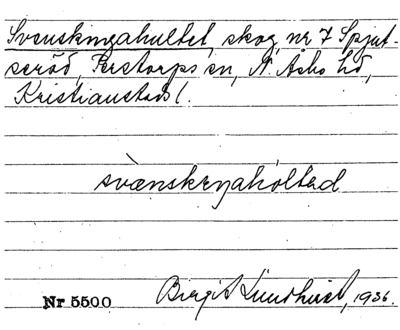 Svenskingahultet, skog, nr 7 Spjut-
seröd, Perstorps sn, N. Åsbo hd,
Kristianstads l.
svænskeŋahóltad
Nr 5500 Birgit Lundhust, 1936.